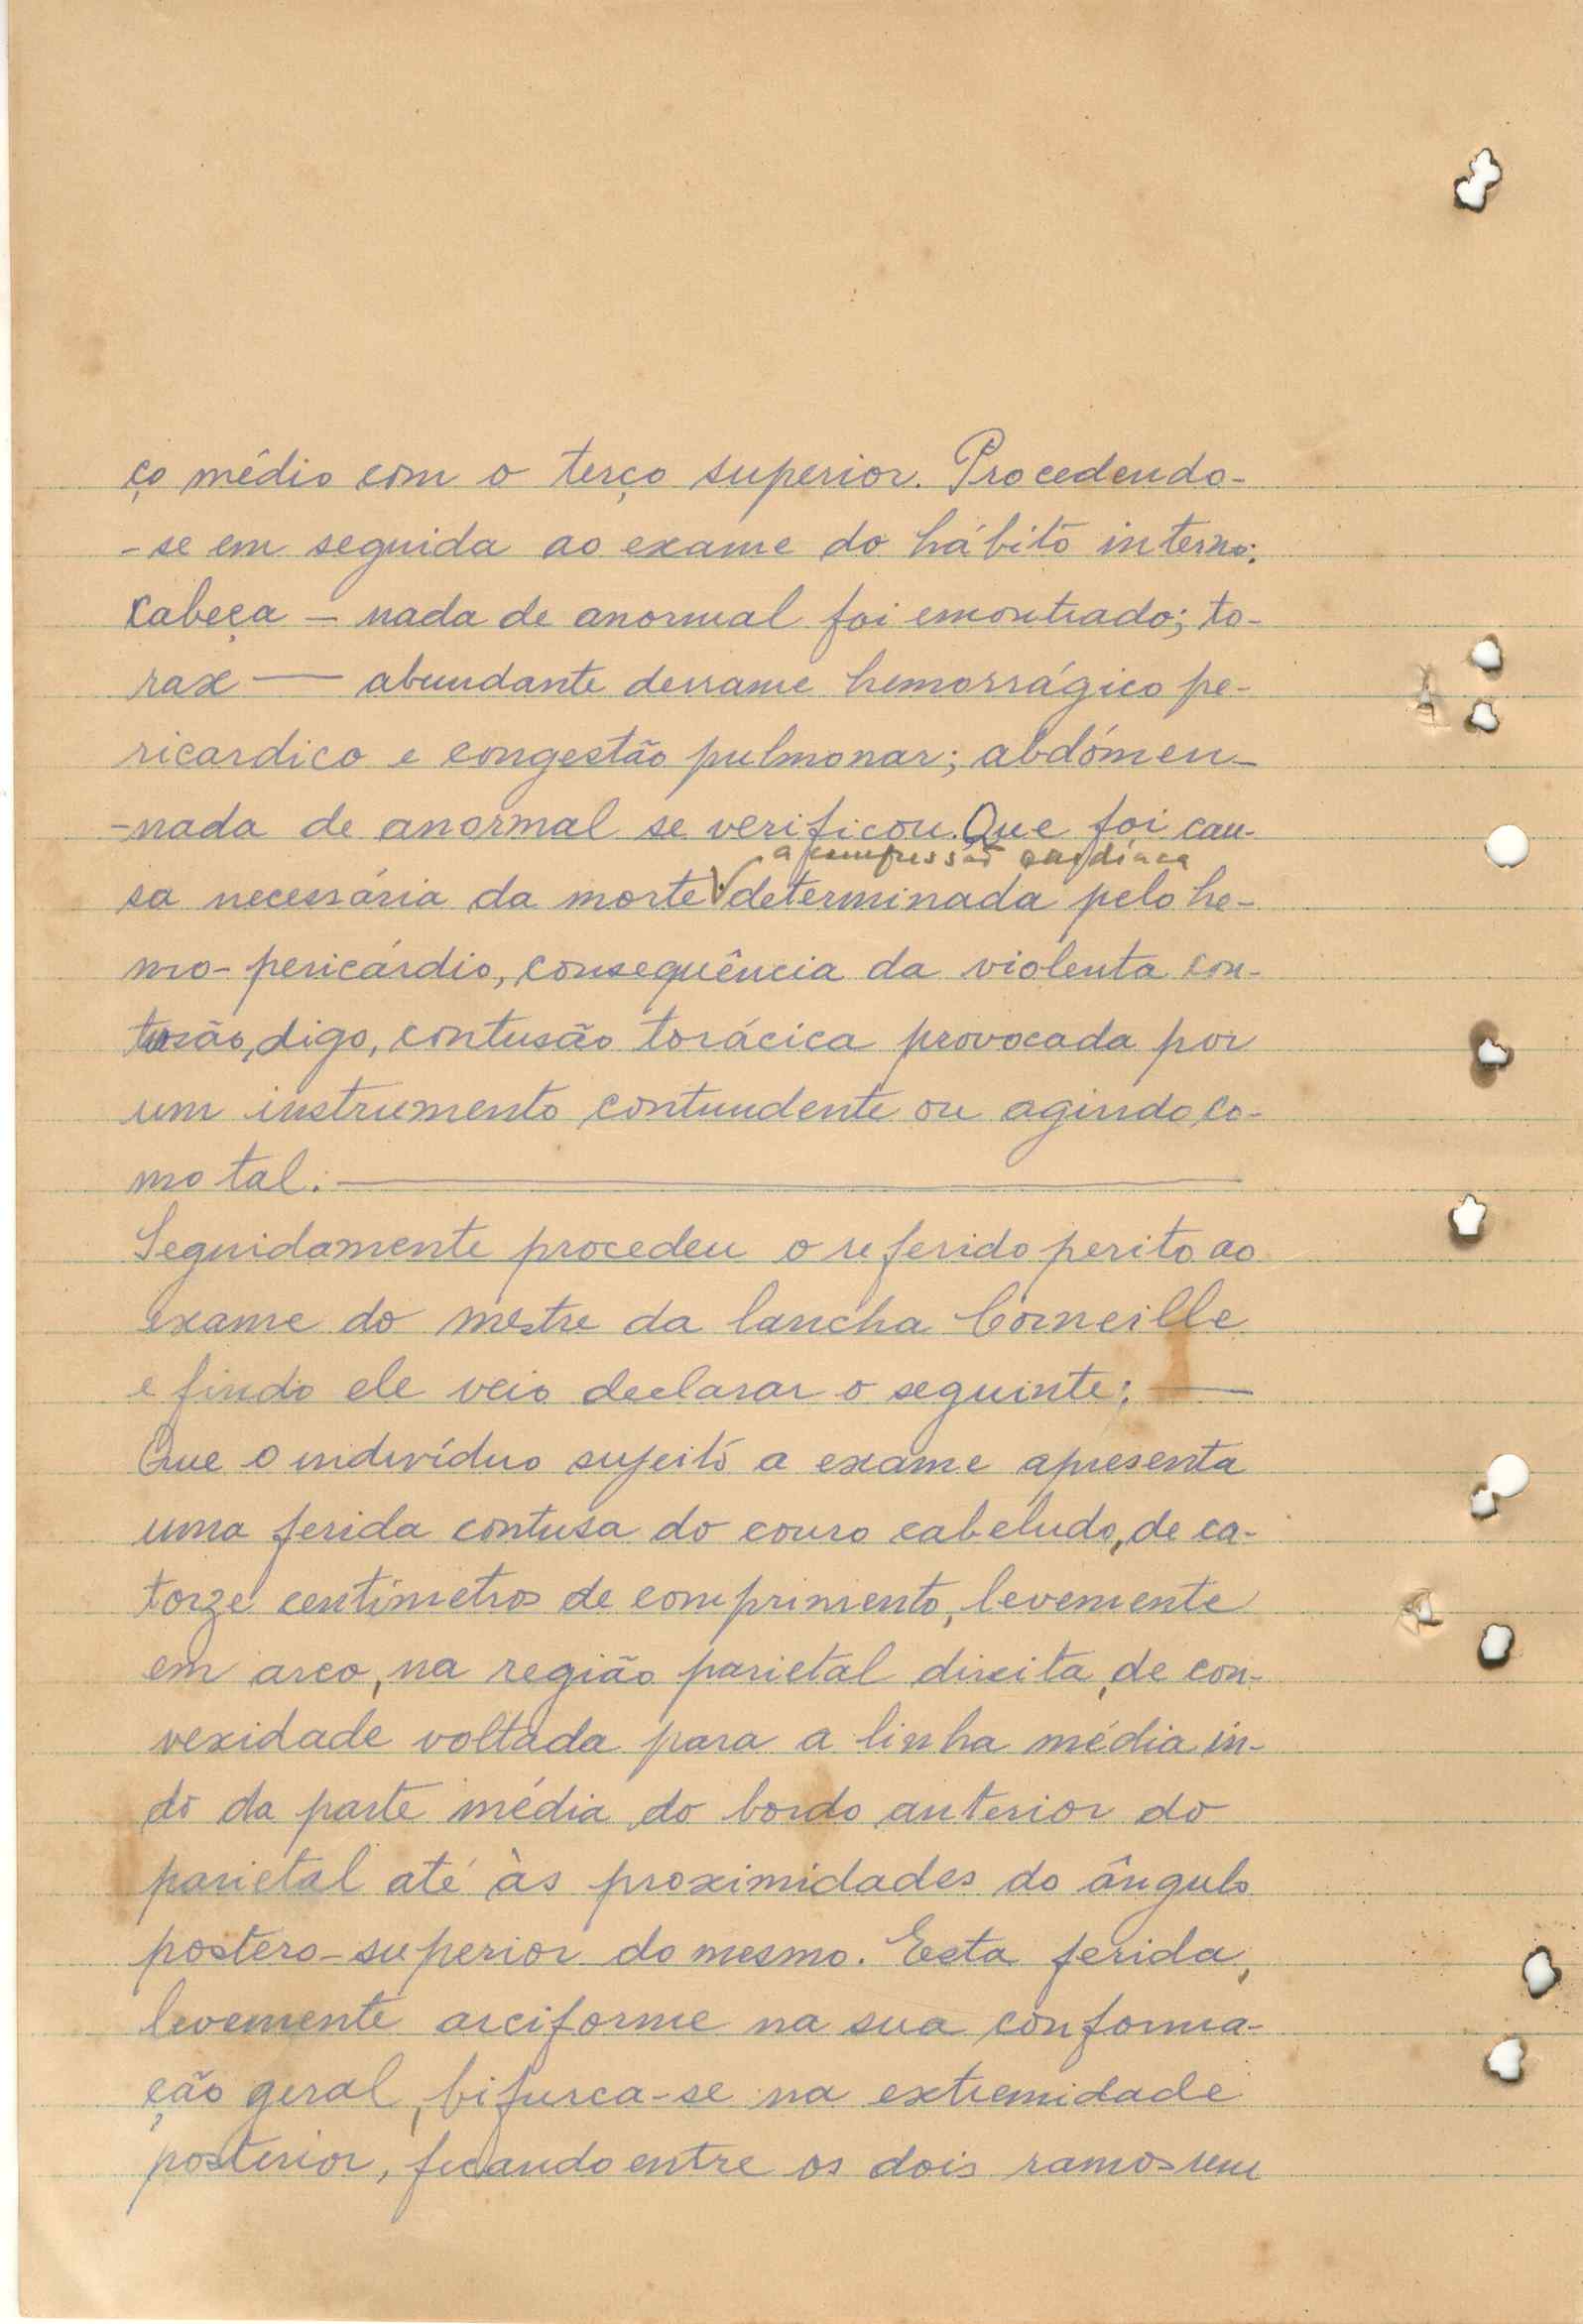 ço médio com o terço superior. Procedendo-
-se em seguida ao exame do hábito interno:
Cabeça - nada de anormal foi encontrado; to-
rax — abundante derrame hemorrágico pe-
ricardico e congestão pulmonar; abdómen -
-nada de anormal se verificou. Que foi cau-
a compressão cardíaca
sa necessária da morte determinada pelo he-
mo-pericárdio, consequência da violenta con-
tusão, digo, contusão torácica provocada por
um instrumento contundente ou agindo co-
mo tal. —
Seguidamente procedeu o referido perito ao
exame do mestre da lancha Corneille
e findo ele veio declarar o seguinte: —
Que o indivíduo sujeito a exame apresenta
uma ferida contusa do couro cabeludo, de ca-
torze centímetros de comprimento, levemente
em arco, na região parietal direita, de con-
vexidade voltada para a linha média in-
do da parte média do bordo anterior do
parietal até às proximidades do ângulo
postero-superior do mesmo. Esta ferida,
levemente arciforme na sua conforma-
ção geral, bifurca-se na extremidade
posterior, ficando entre os dois ramos um